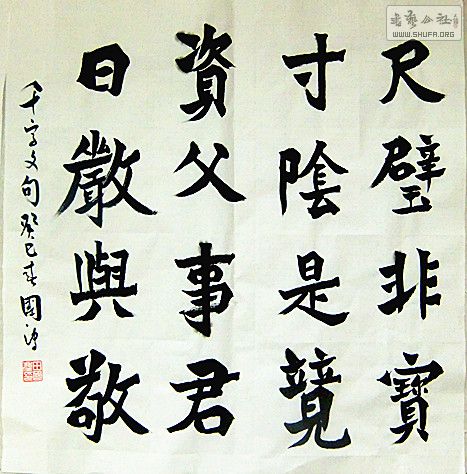 尺璧非寶
寸陰是競
資父事君
曰嚴與敬
千字文句 癸巳春國
书艺公社
WWW.SHUFA.ORG